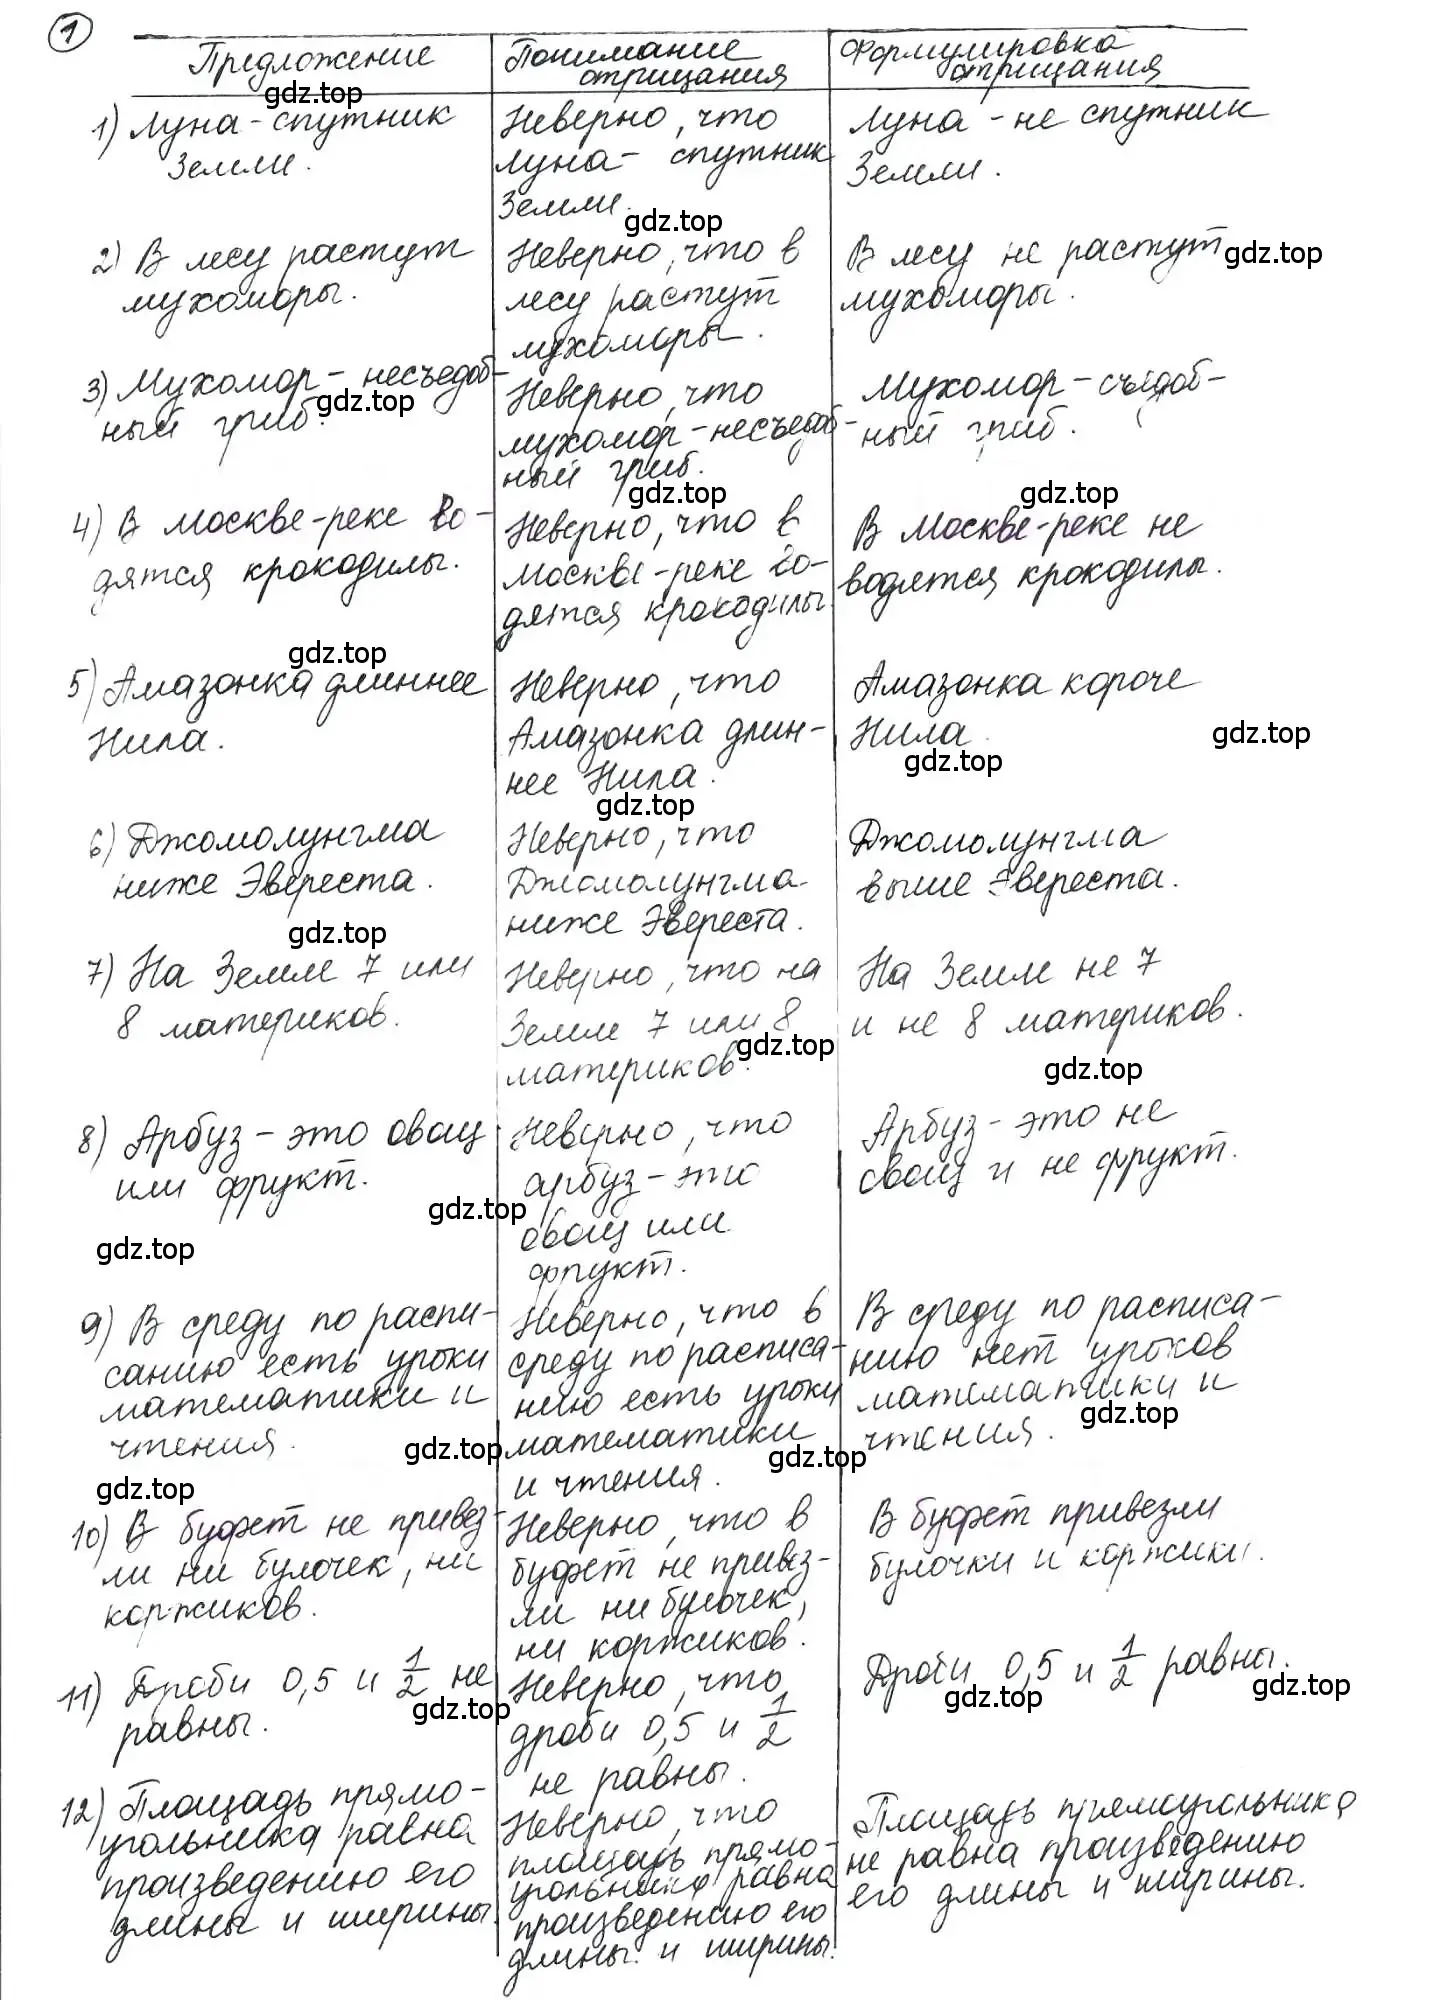 1
Предложение
Понимание
отрицания
Формулировка
отрицания
gdz.top
1) Луна - спутник
Земли.
Неверно, что
Луна - спутник
Земли.
gdz.top
Луна - не спутник
Земли.
2) В лесу растут
мухоморы.
Неверно, что в
лесу растут
мухоморы.
В лесу не растут
мухоморы.
gdz.top
3) Мухомор - несъедоб-
ный гриб.
gdz.top
Неверно, что
мухомор - несъедоб-
ный гриб.
gdz.top
Мухомор - съедоб-
ный гриб.
gdz.top
4) В Москве-реке во-
дятся крокодилы.
Неверно, что в
Москве-реке во-
дятся крокодилы
В Москве-реке не
водятся крокодилы.
gdz.top
5) Амазонка длиннее
Нила.
Неверно, что
Амазонка длин-
нее Нила.
gdz.top
Амазонка короче
Нила.
gdz.top
gdz.top
6) Джомолунгма
ниже Эвереста.
gdz.top
Неверно, что
Джомолунгма
ниже Эвереста.
Джомолунгма
выше Эвереста.
7) На Земле 7 или
8 материков.
Неверно, что на
Земле 7 или 8
материков.
gdz.top
На Земле не 7
и не 8 материков.
gdz.top
8) Арбуз - это овощ
или фрукт.
gdz.top
gdz.top
Неверно, что
арбуз - это
овощ или
фрукт.
Арбуз - это не
овощ и не фрукт.
9) В среду по распи-
санию есть уроки
математики и
чтения.
gdz.top
gdz.top
Неверно, что в
среду по расписа-
нию есть уроки
математики
и чтения.
gdz.top
В среду по расписа-
нию нет уроков
математики и
чтения.
gdz.top
10) В буфет не привез-
ли ни булочек, ни
коржиков.
Неверно, что в
буфет не привез-
ли ни булочек,
ни коржиков.
В буфет привезли
булочки и коржики.
11) Дроби 0,5 и 1/2 не
равны.
gdz.top
Неверно, что
дроби 0,5 и 1/2
не равны.
Дроби 0,5 и 1/2 равны.
gdz.top
gdz.top
12) Площадь прямо-
угольника равна
произведению его
длины и ширины.
Неверно, что
площадь прямо-
угольника равна
произведению его
длины и ширины.
Площадь прямоугольника
не равна произведению
его длины и ширины.